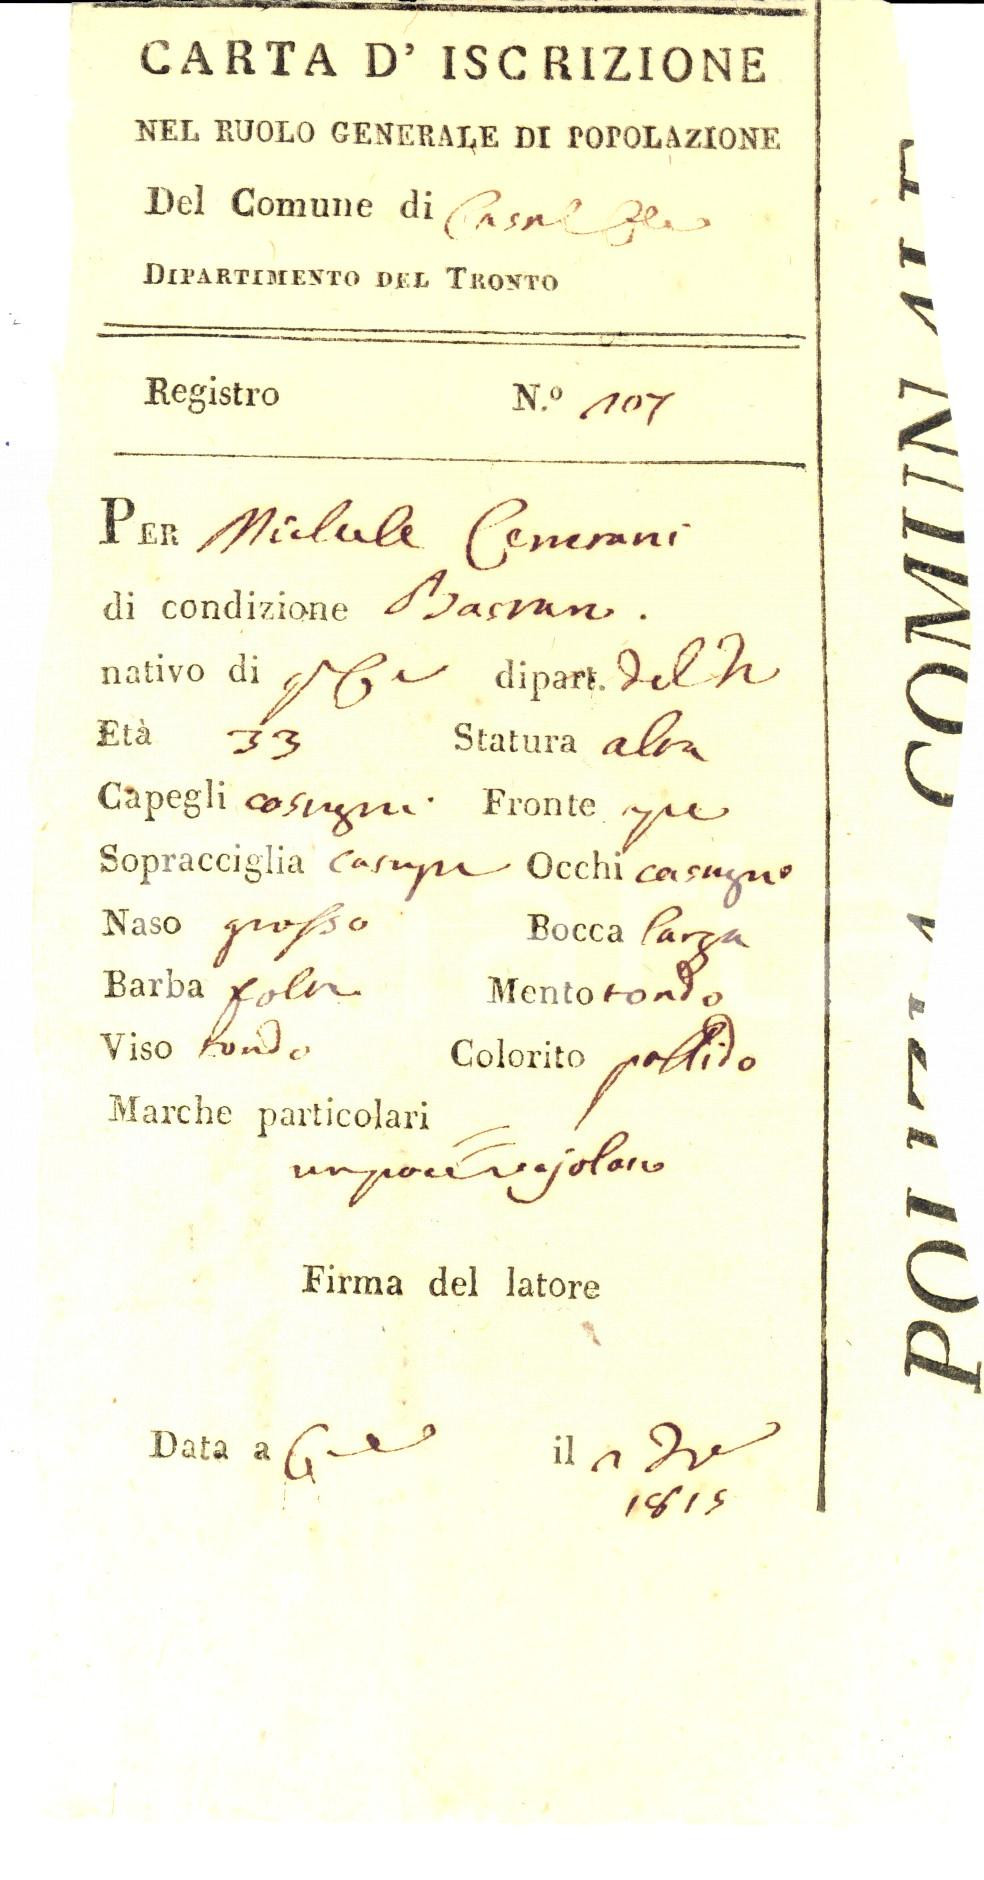 CARTA D' ISCRIZIONE
NEL RUOLO GENERALE DI POPOLAZIONE
Del Comune di
DIPARTIMENTO DEL TRONTO
Registro N.º 107
PER Michele
di condizione
nativo di dipart. del
Età 33 Statura alta
Capegli castagni Fronte
Sopracciglia Occhi castagno
Naso grosso Bocca larga
Barba folta Mento tondo
Viso tondo Colorito pallido
Marche particolari
un poco vajoloso
Firma del latore
Data a il 1
1815
POLIZIA COMUNALE